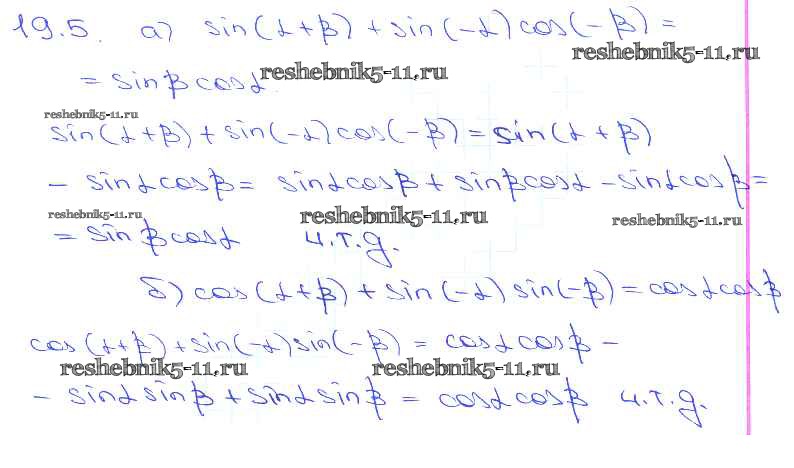 19.5. а) sin(α+β) + sin(-α) cos(-β) =
reshebnik5-11.ru
= sinβ cosα.
reshebnik5-11.ru
reshebnik5-11.ru
sin(α+β) + sin(-α) cos(-β) = sin(α+β)
- sinα cosβ = sinα cosβ + sinβ cosα - sinα cosβ =
reshebnik5-11.ru reshebnik5-11.ru reshebnik5-11.ru
= sinβ cosα ч.т.д.
б) cos(α+β) + sin(-α) sin(-β) = cosα cosβ
cos(α+β) + sin(-α) sin(-β) = cosα cosβ -
reshebnik5-11.ru reshebnik5-11.ru
- sinα sinβ + sinα sinβ = cosα cosβ ч.т.д.